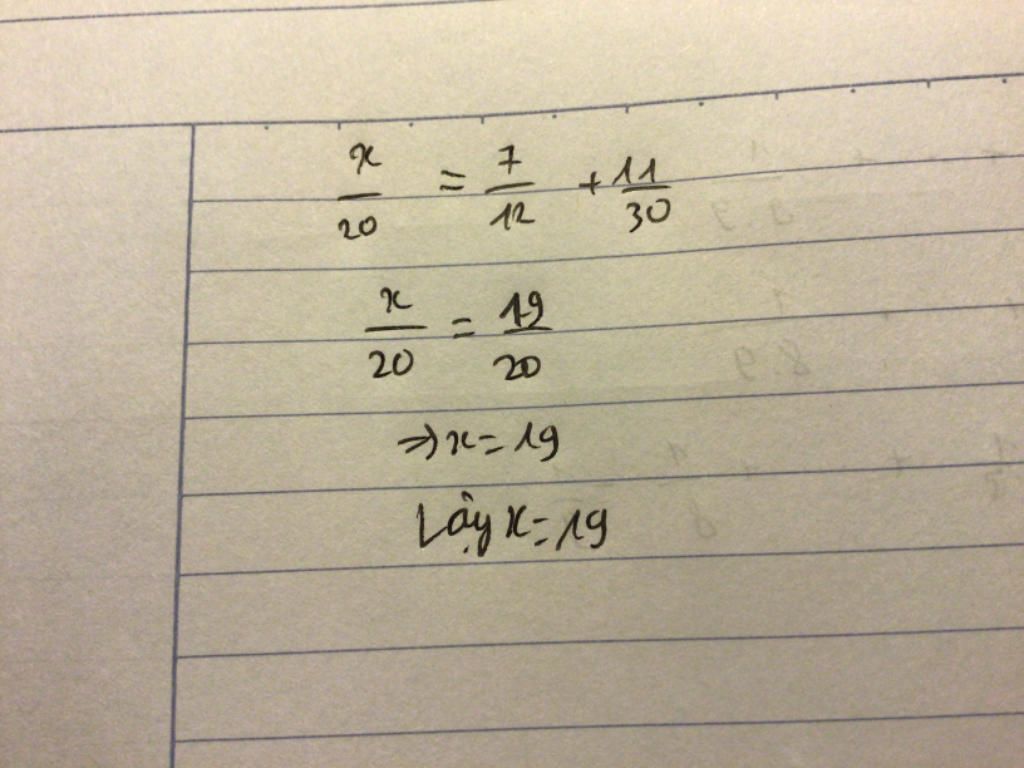 x/20 = 7/12 + 11/30
x/20 = 19/20
⇒ x = 19
Vậy x = 19